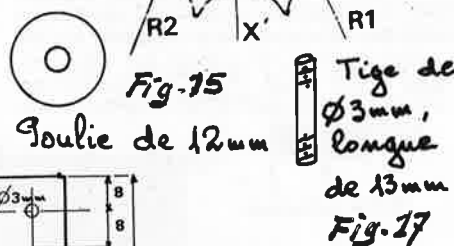 R2
X'
R1
Fig-15
Poulie de 12mm
Tige de
Ø3mm,
longue
de 13mm
Fig.17
Ø3mm
8
8